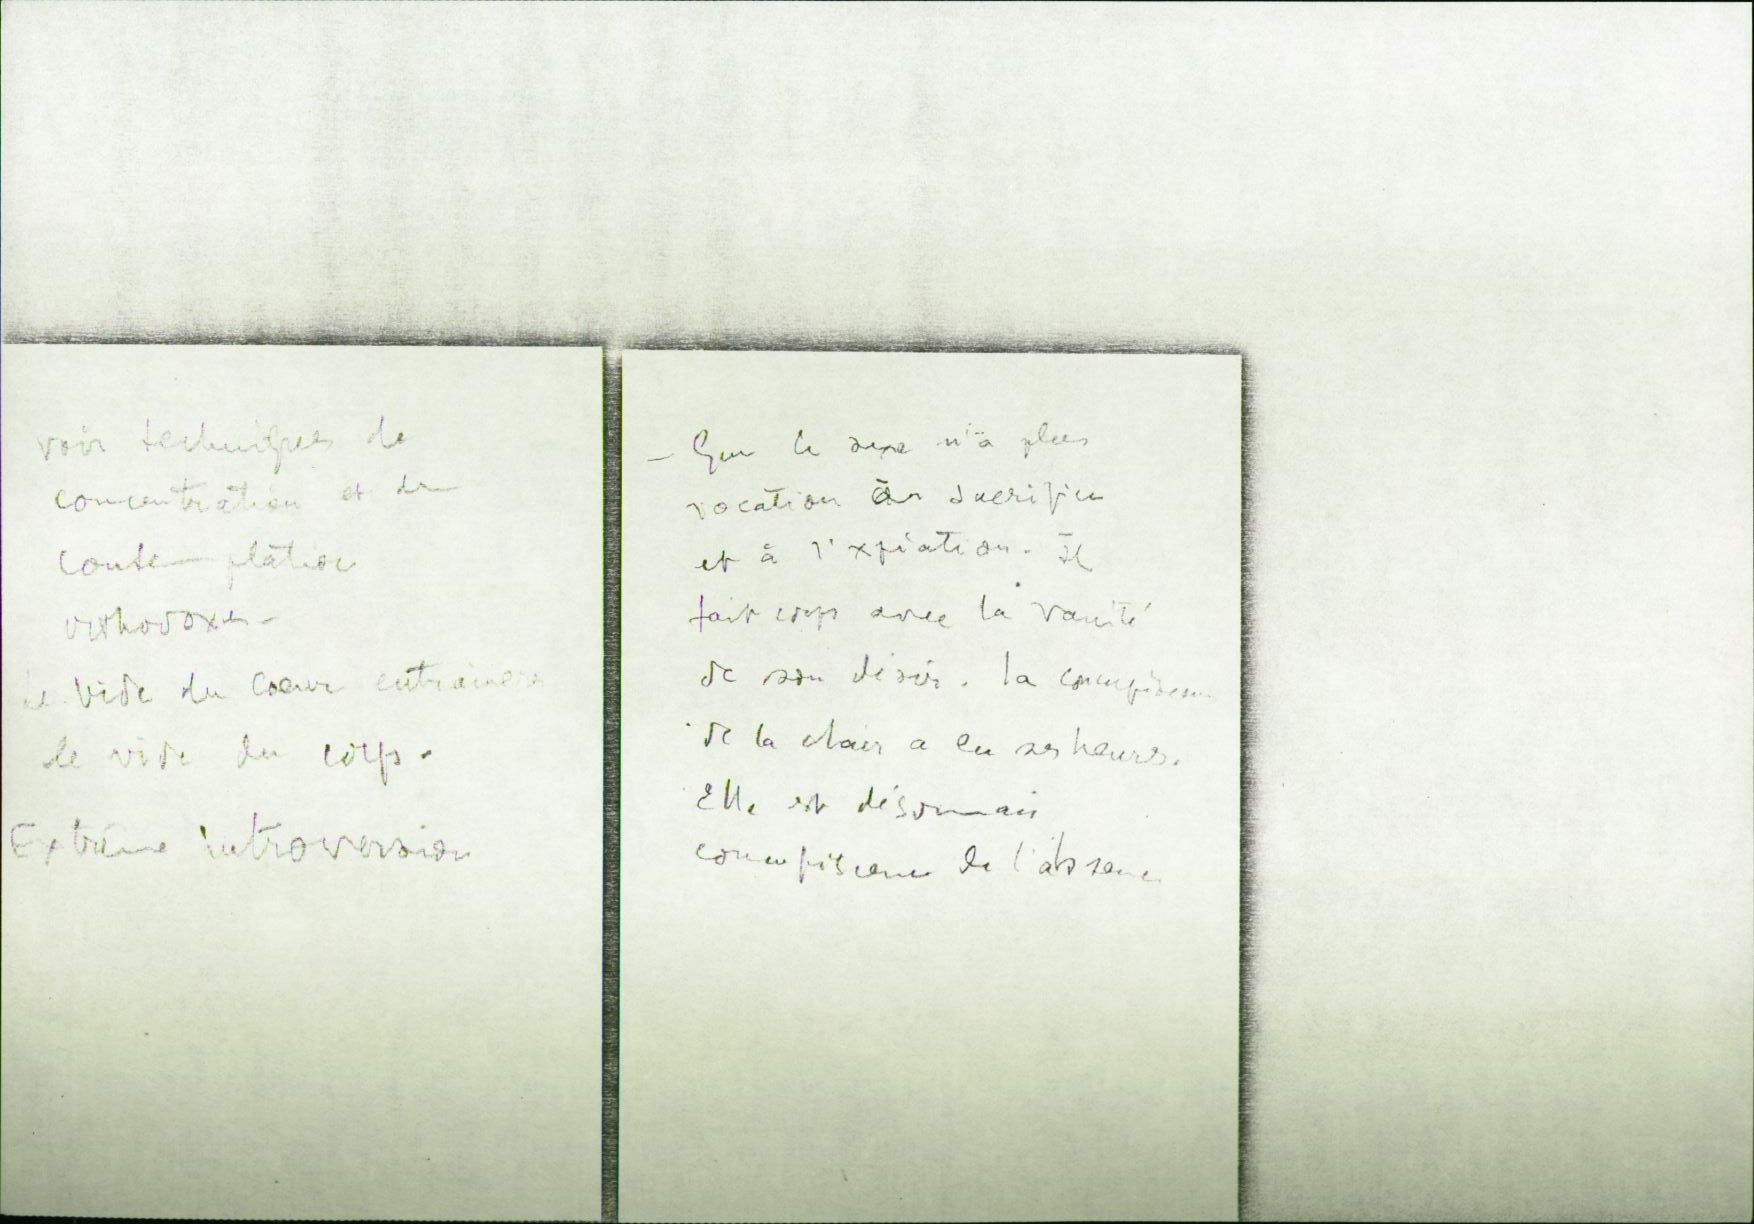 voir techniques de
concentration et de
contemplation
orthodoxes -
le vide du coeur entrainera
le vide du corps.
Extrême introversion
- Que le sexe n'a plus
vocation au sacrifice
et à l'expiation. Il
fait corps avec la vanité
de son désir. la concupiscence
de la chair a eu ses heures.
Elle est désormais
concupiscence de l'absence